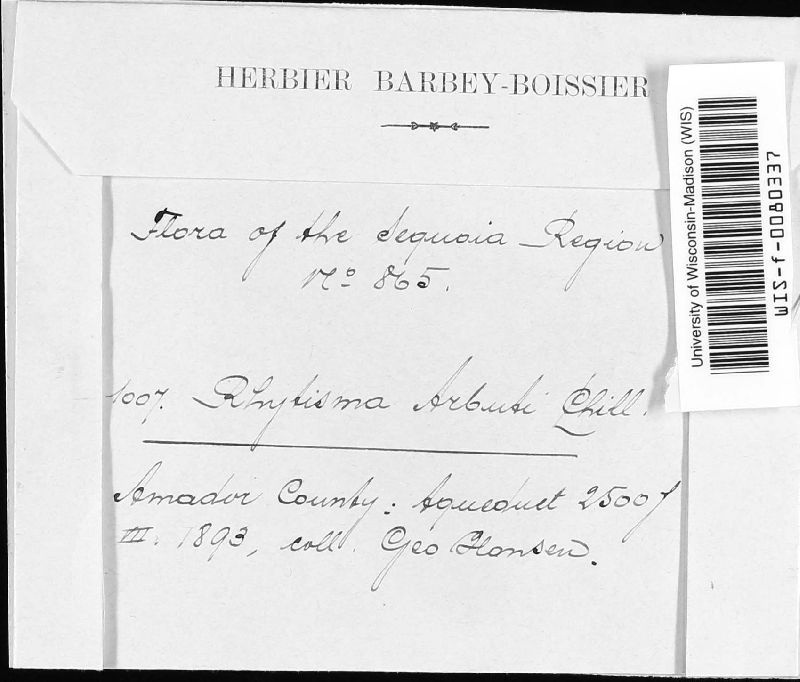 HERBIER BARBEY-BOISSIER
Flora of the Sequoia Region
No 865.
1007. Rhytisma Arbuti Phill.
Amador County: Aqueduct 2500 f
III. 1893, coll. Geo Hansen.
University of Wisconsin-Madison (WIS)
WIS-f-0080337